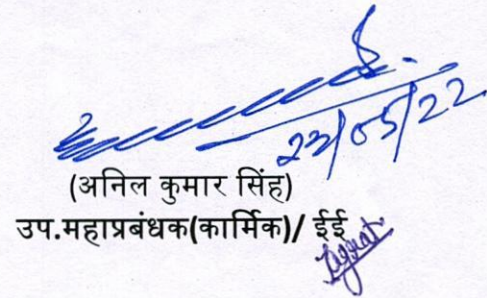 23/05/22
(अनिल कुमार सिंह)
उप.महाप्रबंधक(कार्मिक)/ ईई